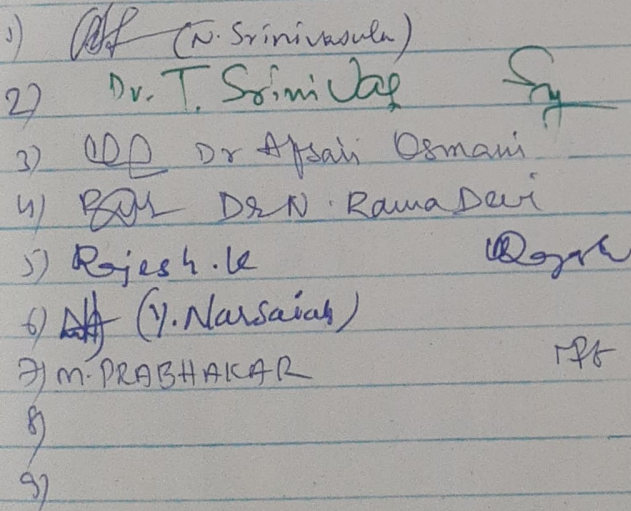 1) (N. Srinivasulu)
2) Dr. T. Srinivas
3) Dr Afsari Osmani
4) Dr N. Rama Devi
5) Rajesh. K
6) (Y. Narsaiah)
7) M. PRABHAKAR
8)
9)